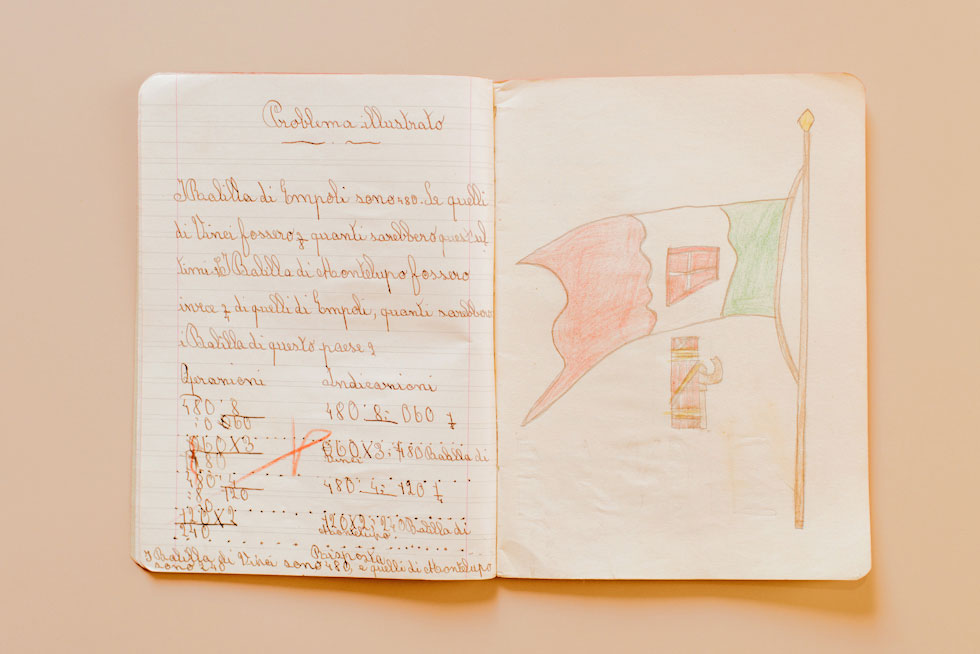 Problema illustrato
I Balilla di Empoli sono 480. Se quelli
di Vinci fossero quanti sarebbero quest'ul
timi? I Balilla di Montelupo fossero
invece di quelli di Empoli, quanti sarebbero
i Balilla di questo paese?
Operazioni Indicazioni
480:8 480:8= 060
:0 060
060X3 060X3=180 Balilla di
180 Vinci
480:4 480:4=120
:8 120
:0
120X2 120X2=240 Balilla di
240 Montelupo.
Risposta
I Balilla di Vinci sono 480, e quelli di Montelupo
sono 240